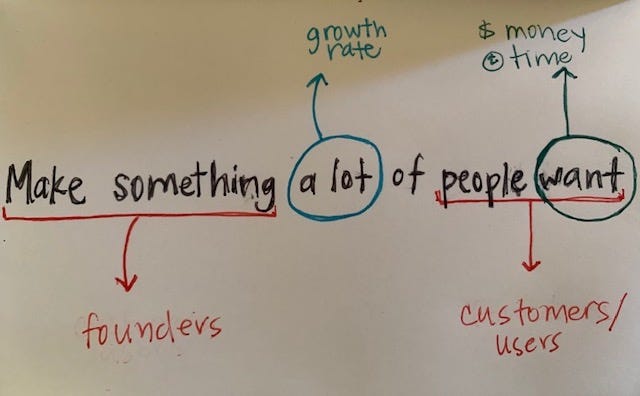 growth
rate
$ money
time
Make something a lot of people want
founders
customers/
users